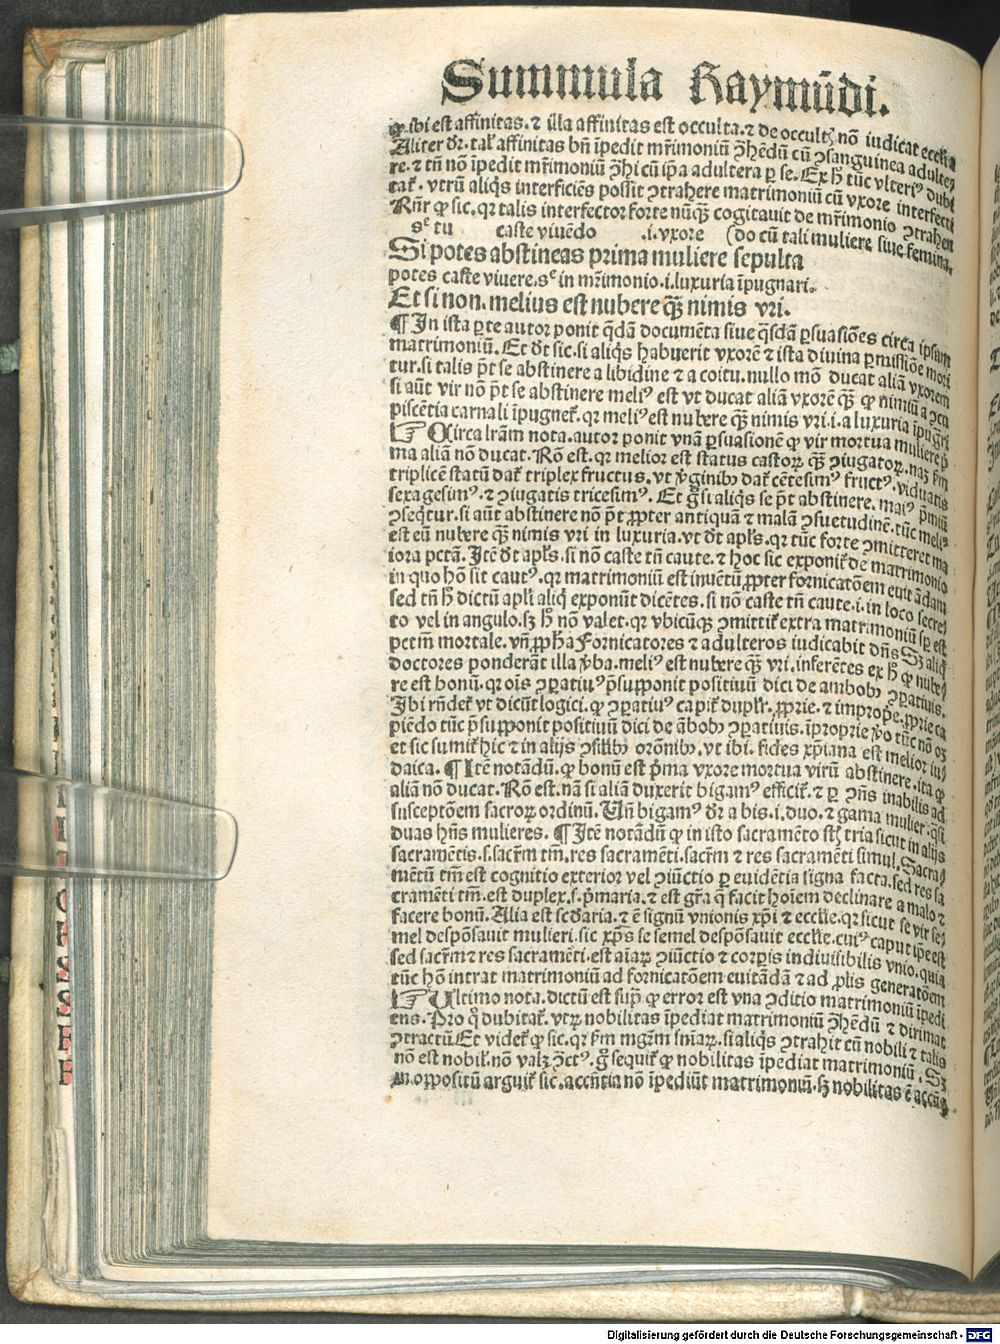 Summula Raymūdi.
ꝙ ibi est affinitas.⁊ illa affinitas est occulta.⁊ de occultꝭ nō iudicat ecclīa
Aliter dr̄.tal' affinitas bn̄ īpedit mr̄imoniū ꝯhēdū cū ꝯsanguinea adulte
re.⁊ tn̄ nō īpedit mr̄imoniū ꝯhi cū ip̄a adultera ꝑ se.Ex hͦ tūc vlteriꝰ dubi
tat̄.vtrū aliq̄s interficiēs possit ꝯtrahere matrimoniū cū vxore interfecti
Rn̄r ꝙ sic.qꝛ talis interfector forte nūꝗ̄ cogitauit de mr̄imonio ꝯtrahen
sᵉ tu caste viuēdo .i.vxore (do cū tali muliere siue femina.
Si potes abstineas prima muliere sepulta
potes caste viuere.sᵉ in mr̄imonio.i.luxuria īpugnari.
Et si non.melius est nubere ꝗ̄ nimis vri.
¶ In ista ꝑte autor ponit q̄dā documēta siue q̄sdā ꝑsuasiōes circa ipsum
matrimoniū.Et dt̄ sic.si aliq̄s habuerit vxorē ⁊ ista diuina ꝑmissiōe mori
tur.si talis pt̄ se abstinere a libidine ⁊ a coitu.nullo mō ducat aliā vxorem
si aūt vir nō pt̄ se abstinere meliꝰ est vt ducat aliā vxorē ꝗ̄ ꝙ nimiū a ꝯcu
piscētia carnali īpugnet̄.qꝛ meliꝰ est nubere ꝗ̄ nimis vri.i.a luxuria īpugr̄i
☞ Circa lr̄am nota.autor ponit vnā ꝑsuasionē ꝙ vir mortua muliere p̄
ma aliā nō ducat.Rō est.qꝛ melior est status castoꝝ ꝗ̄ ꝯiugatoꝝ.naꝫ ẜm
triplicē statū dat̄ triplex fructus.vt v̓ginibꝫ dat̄ cētesimꝰ fructꝰ.viduatis
sexagesimꝰ.⁊ ꝯiugatis tricesimꝰ. Et gͦ si aliq̄s se pt̄ abstinere.maiꝰ p̄miū
ꝯseq̄tur.si aūt abstinere nō pt̄ ꝓpter antiquā ⁊ malā ꝯsuetudinē.tūc meliꝰ
est eū nubere ꝗ̄ nimis vri in luxuria.vt dt̄ apl's.qꝛ tūc forte ꝯmitteret ma
iora pctā.Itē dt̄ apl's.si nō caste tn̄ caute.⁊ hoc sic exponit̄ de matrimonio
in quo hō sit cautꝰ.qꝛ matrimoniū est inuētū ꝓpter fornicatōem euitādam
sed tn̄ hͦ dictū apl'i aliq̄ exponūt dicētes.si nō caste tn̄ caute.i.in loco secre
to vel in angulo.sꝫ hͦ nō valet.qꝛ vbicūꝗ̄ ꝯmittit̄ extra matrimoniū sp̄ est
pctm̄ mortale.vn̄ ꝓph̄a Fornicatores ⁊ adulteros iudicabit dn̄s Sꝫ aliq̄
doctores ponderāt illa v̓ba.meliꝰ est nubere ꝗ̄ vri.inferētes ex hͦ ꝙ nube
re est bonū.qꝛ oīs ꝯꝑatiuꝰ p̄supponit positiuū dici de ambobꝫ ꝯꝑatiuis.
Ibi rn̄det̄ vt dicūt logici.ꝙ ꝯꝑatiuꝰ capit̄ dupl'r.ꝓprie.⁊ improprie.ꝓprie ca
piēdo tūc p̄supponit positiuū dici de ābobꝫ ꝯꝑatiuis.īproprie v̓o tūc nō oꝫ
et sic sumit̄ hic ⁊ in alijs ꝯsil'ibꝫ orōnibꝫ.vt ibi.fides xp̄iana est melior iu
daica. ¶ Itē notādū.ꝙ bonū est p̄ma vxore mortua virū abstinere.ita ꝙ
aliā nō ducat.Rō est.nā si aliā duxerit bigamꝰ efficit̄.⁊ ꝑ ꝯn̄s inabilis ad
susceptōem sacroꝝ ordinū. Un̄ bigamꝰ dr̄ a bis.i.duo.⁊ gama mulier.q̄si
duas hn̄s mulieres. ¶ Itē notādū ꝙ in isto sacramēto st̄ tria sicut in alijs
sacramētis.s.sacr̄m tm̄.res sacramēti.sacr̄m ⁊ res sacramēti simul.Sacra
mētū tm̄ est cognitio exterior vel ꝯiūctio ꝑ euidētia signa facta.sed res sa
cramēti tm̄.est duplex.s.p̄maria.⁊ est gr̄a q̄ facit hoīem declinare a malo ⁊
facere bonū.Alia est scd̄aria.⁊ ē signū vnionis xp̄i ⁊ eccl'ie.qꝛ sicut se vir se
mel despōsauit mulieri.sic xp̄s se semel despōsauit eccl'ie.cuiꝰ caput ip̄e est
sed sacr̄m ⁊ res sacramēti.est aīaꝝ ꝯiūctio ⁊ corpꝭis indiuisibilis vnio.quia
tūc hō intrat matrimoniū ad fornicatōem euitādā ⁊ ad ꝓlis generatōem
☞ Ultimo nota.dictū est sup̄ ꝙ error est vna ꝯditio matrimoniū īpedi
ens.Pro qͦ dubitat̄.vtꝝ nobilitas īpediat matrimoniū ꝯhēdū ⁊ dirimat
ꝯtractū Et videt̄ ꝙ sic.qꝛ ẜm mgr̄m sn̄iaꝝ.si aliq̄s ꝯtrahit cū nobili ⁊ talis
nō est nobil'.nō valꝫ ꝯctꝰ.gͦ sequit̄ ꝙ nobilitas īpediat matrimoniū. Sꝫ
in oppositū arguit̄ sic.accn̄tia nō īpediūt matrimoniū.sꝫ nobilitas ē accn̄s
Digitalisierung gefördert durch die Deutsche Forschungsgemeinschaft - DFG